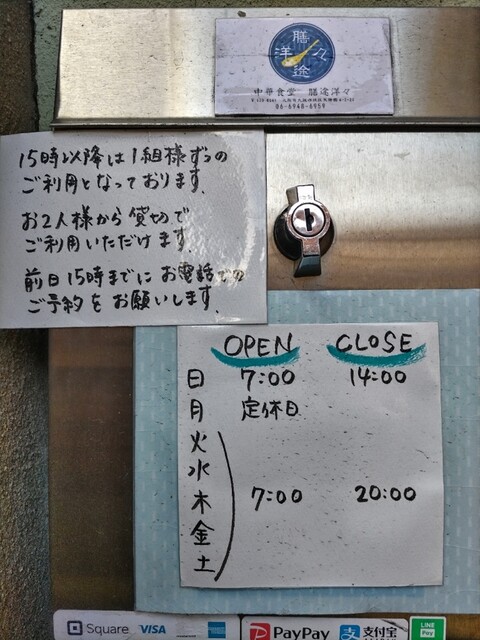 膳
洋 々
途
中華食堂 膳途洋々
06-6948-6959
15時以降は1組様ずつの
ご利用となっております。
お2人様から貸切で
ご利用いただけます。
前日15時までにお電話での
ご予約をお願いします。
OPEN CLOSE
日 7:00 14:00
月 定休日
火
水
木 7:00 20:00
金
土
Square VISA
PayPay 支付宝 LINE Pay